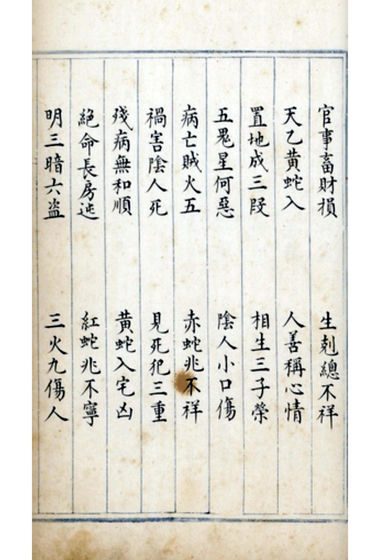 官事畜財損　生剋總不祥
天乙黃蛇入　人善稱心情
置地成三段　相生三子榮
五鬼星何惡　陰人小口傷
病亡賊火五　赤蛇兆不祥
禍害陰人死　見死犯三重
殘病無和順　黃蛇入宅凶
絕命長房迯　紅蛇兆不寧
明三暗六盜　三火九傷人